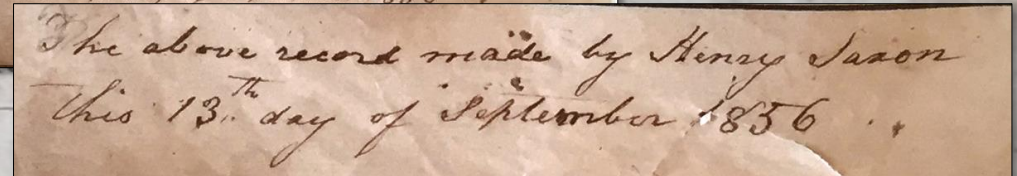 The above record made by Henry Saxon
this 13th day of September 1856